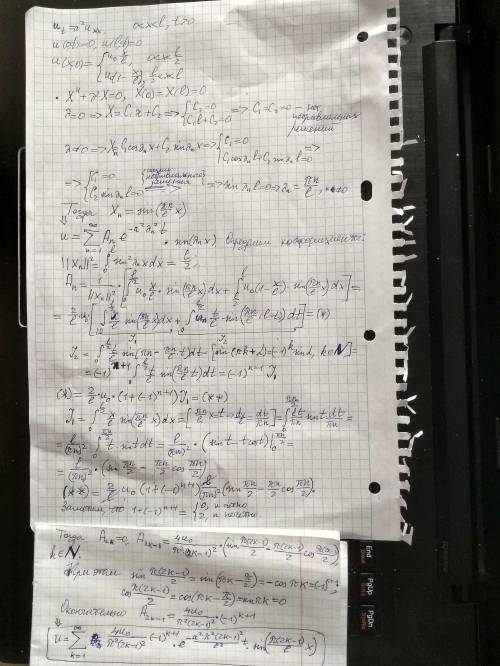 u_t = a² u_xx, 0<x<l, t>0
u(0,t)=0, u(l,t)=0
u(x,0) = { u₀ x/l, 0<x<l/2
u₀(1-x/l), l/2<x<l
X''+λ²X=0, X(0)=X(l)=0
λ=0 => X=C₁x+C₂ => { C₂=0 C₁l+C₂=0 => C₁=C₂=0 – нет нетривиальных решений
λ≠0 => X_n=C₁cosλ_n x+C₂ sinλ_n x => { C₁=0 C₁cosλ_n l+C₂ sinλ_n l=0 =>
=> { C₁=0 C₂ sinλ_n l=0 => sinλ_n l=0 => λ_n=πn/l
Тогда X_n = sin(πn/l x)
u = Σ_{n=1}^∞ A_n e^{-a²λ_n² t} · sin(λ_n x) Определим коэффициенты:
||X_n||² = ∫₀^l sin²λ_n x dx = l/2
A_n = 1/||X_n||² [∫₀^{l/2} u₀ x/l · sin(πn/l x)dx + ∫_{l/2}^l u₀(1-x/l) · sin(πn/l x)dx] =
= 2/l u₀ [∫₀^{l/2} x/l sin(πn/l x)dx + ∫₀^{l/2} t/l · sin(πn/l (l-t))dt] = (*)
J₁ J₂
J₂ = ∫₀^{l/2} t/l sin(πn - πn/l t)dt = [sin(πk+α)=(-1)^k sinα, k∈N] =
= (-1)^{n+1} ∫₀^{l/2} t/l sin(πn/l t)dt = (-1)^{n+1} J₁
(*) = 2/l · u₀ · (1+(-1)^{n+1}) J₁ = (**)
J₁ = ∫₀^{l/2} x/l sin(πn/l x)dx = [πn/l x=t => dx/l = dt/πn] = ∫₀^{πn/2} lt/πn sin t · dt/πn =
= l/(πn)² ∫₀^{πn/2} t sin t dt = l/(πn)² · (sin t - t cos t)|₀^{πn/2} =
= l/(πn)² · (sin πn/2 - πn/2 cos πn/2)
(**) = 2/l u₀ (1+(-1)^{n+1}) l/(πn)² (sin πn/2 - πn/2 cos πn/2).
Заметим, что 1+(-1)^{n+1} = { 0, n чётно 2, n нечётно.
Тогда A_{2k}=0, A_{2k-1} = 4u₀/(π²(2k-1)²) · (sin π(2k-1)/2 - π(2k-1)/2 cos π(2k-1)/2),
k∈N.
При этом sin π(2k-1)/2 = sin(πk - π/2) = -cos πk = (-1)^{k+1},
cos π(2k-1)/2 = cos(πk - π/2) = sin πk = 0
Окончательно A_{2k-1} = 4u₀/(π²(2k-1)²) · (-1)^{k+1}
u = Σ_{k=1}^∞ 4u₀/(π²(2k-1)²) (-1)^{k+1} · e^{-a²π²(2k-1)²/l² t} · sin(π(2k-1)/l x)
End
PgUp
PgDn